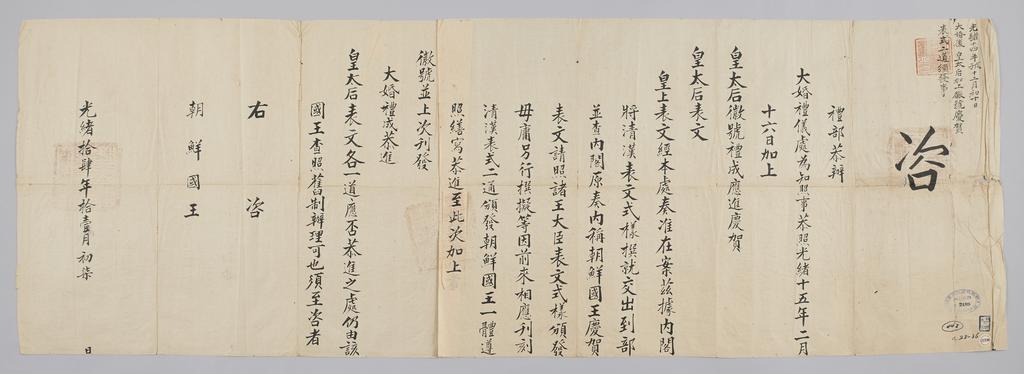 光緒十四年十二月初十日
大婚後 皇太后加上徽號慶賀
表式二道頒發事
咨
禮部恭辦
大婚禮儀處為知照事恭照光緒十五年二月
十六日加上
皇太后徽號禮成應進慶賀
皇太后表文
皇上表文經本處奏准在案茲據內閣
將清漢表文式樣撰就交出到部
並查內閣原奏內稱朝鮮國王慶賀
表文請照諸王大臣表文式樣頒發
毋庸另行撰擬等因前來相應刊刻
清漢表式二通頒發朝鮮國王一體遵
照繕寫恭進至此次加上
徽號並上次刊發
大婚禮成恭進
皇太后表文各一道應否恭進之處仍由該
國王查照舊制辦理可也須至咨者
右 咨
朝鮮國王
光緒拾肆年拾壹月初柒 日